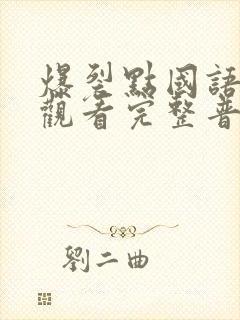 爆裂點國語
觀看完整普
劉二曲